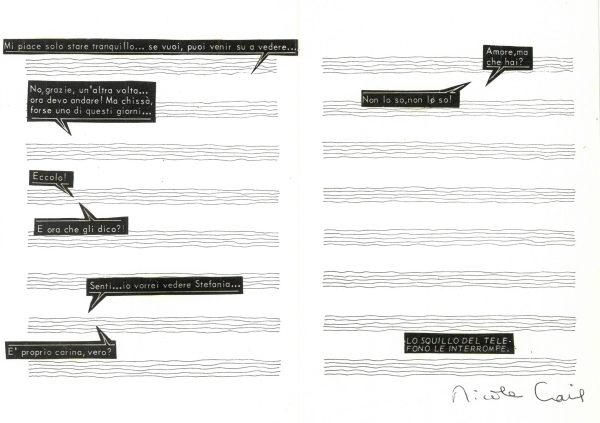 Mi piace solo stare tranquillo... se vuoi, puoi venir su a vedere...
No, grazie, un'altra volta...
ora devo andare! Ma chissà,
forse uno di questi giorni...
Eccolo!
E ora che gli dico?!
Senti...io vorrei vedere Stefania...
E' proprio carina, vero?
Amore, ma
che hai?
Non lo so, non lo so!
LO SQUILLO DEL TELE-
FONO LE INTERROMPE.
Nicole